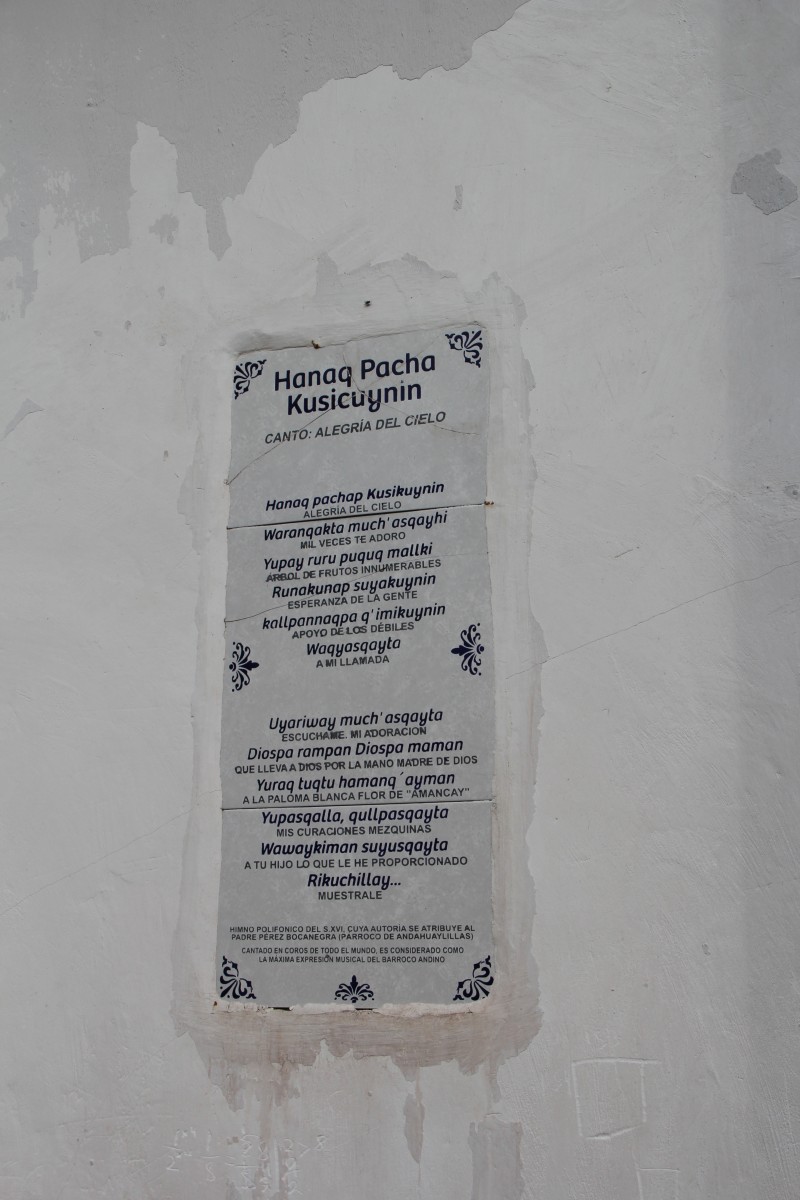 Hanaq Pacha
Kusicuynin
CANTO: ALEGRÍA DEL CIELO
Hanaq pachap Kusikuynin
ALEGRÍA DEL CIELO
Waranqakta much' asqayhi
MIL VECES TE ADORO
Yupay ruru puquq mallki
ÁRBOL DE FRUTOS INNUMERABLES
Runakunap suyakuynin
ESPERANZA DE LA GENTE
kallpannaqpa q' imikuynin
APOYO DE LOS DÉBILES
Waqyasqayta
A MI LLAMADA
Uyariway much' asqayta
ESCUCHAME. MI ADORACION
Diospa rampan Diospa maman
QUE LLEVA A DIOS POR LA MANO MADRE DE DIOS
Yuraq tuqtu hamanq´ayman
A LA PALOMA BLANCA FLOR DE "AMANCAY"
Yupasqalla, qullpasqayta
MIS CURACIONES MEZQUINAS
Wawaykiman suyusqayta
A TU HIJO LO QUE LE HE PROPORCIONADO
Rikuchillay...
MUESTRALE
HIMNO POLIFONICO DEL S.XVI, CUYA AUTORÍA SE ATRIBUYE AL
PADRE PÉREZ BOCANEGRA (PÁRROCO DE ANDAHUAYLILLAS)
CANTADO EN COROS DE TODO EL MUNDO, ES CONSIDERADO COMO
LA MÁXIMA EXPRESIÓN MUSICAL DEL BARROCO ANDINO